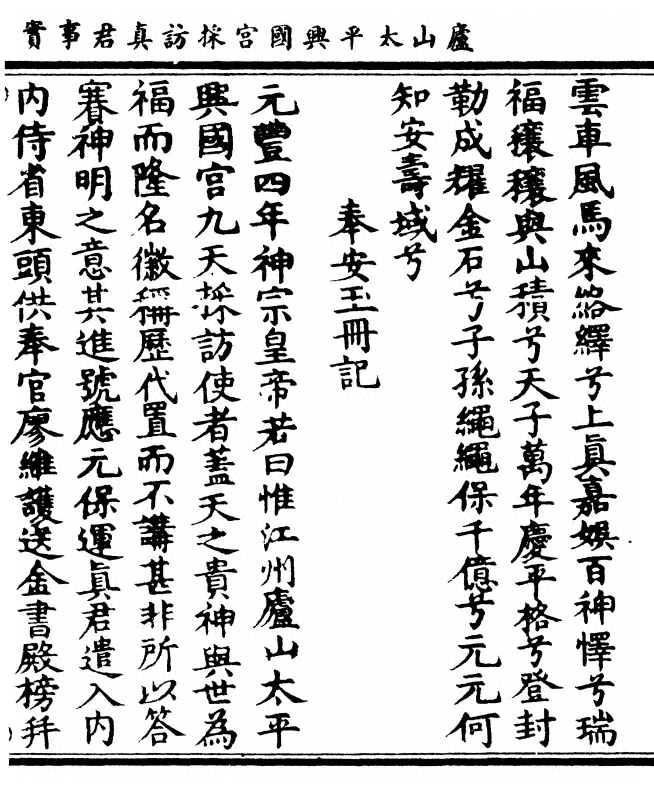 廬山太平興國宮採訪真君事實
雲車風馬來絡繹兮上眞嘉娛百神懌兮瑞
福穰穰與山積兮天子萬年慶平格兮登封
勒成耀金石兮子孫繩繩保千億兮元元何
知安壽域兮
奉安玉冊記
元豐四年神宗皇帝若曰惟江州廬山太平
興國宮九天採訪使者蓋天之貴神與世為
福而隆名徽稱歷代置而不講甚非所以答
賽神明之意其進號應元保運眞君遣入內
內侍省東頭供奉官廖維護送金書殿榜并